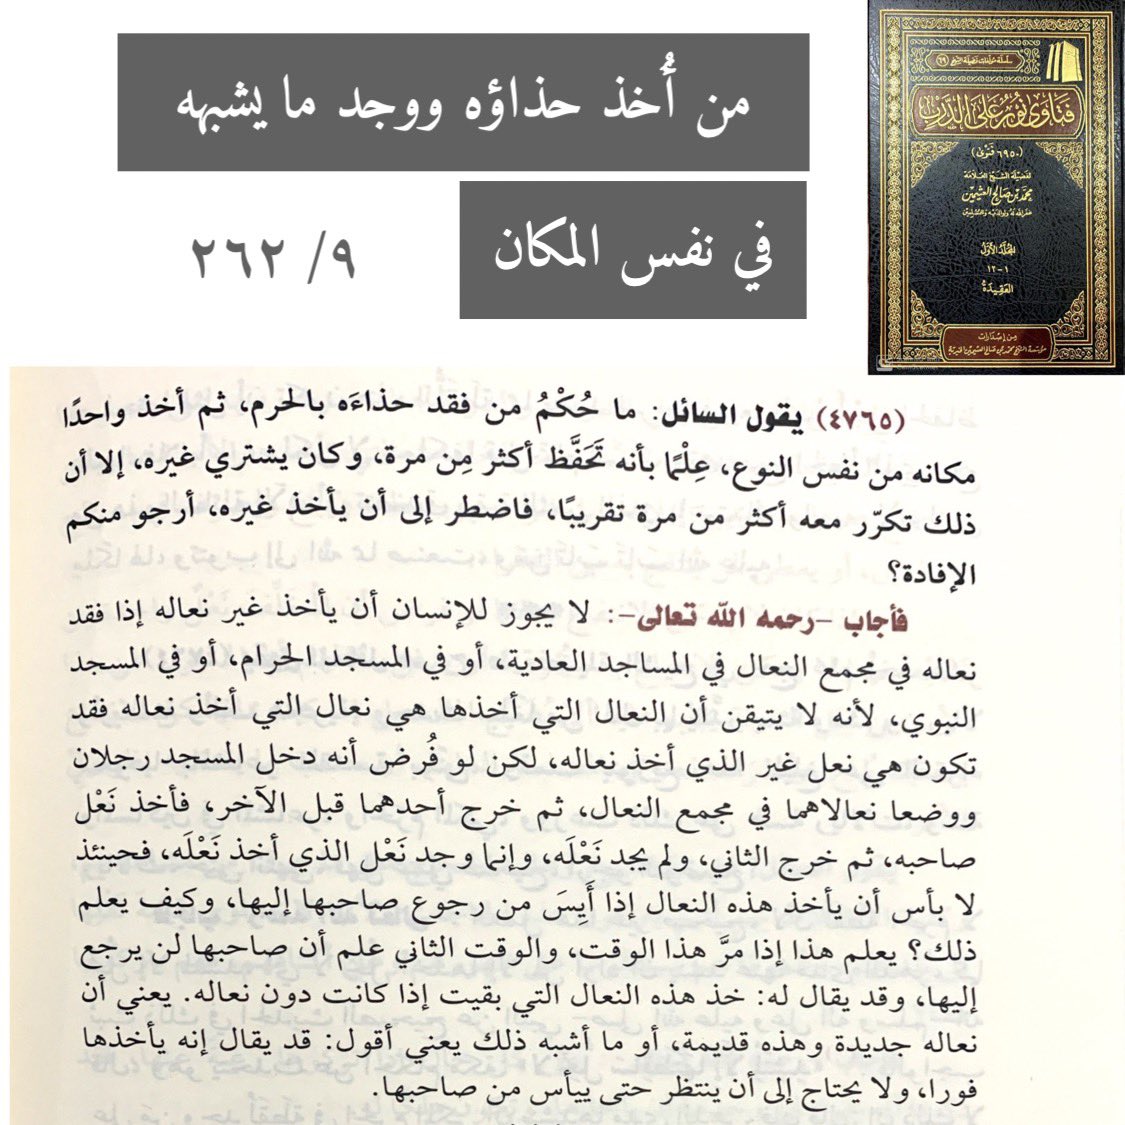 من أُخذ حذاؤه ووجد ما يشبهه
في نفس المكان
٩/ ٢٦٢
سلسلة مؤلفات فضيلة الشيخ (٦٩)
فتاوى نور على الدرب
(٦٩٥٠ فتوى)
لفضيلة الشيخ العلامة
محمد بن صالح العثيمين
غفر الله له ولوالديه وللمسلمين
المجلد الأول
١-١٢
العقيدة
من إصدارات
مؤسسة الشيخ محمد بن صالح العثيمين الخيرية
(٤٧٦٥) يقول السائل: ما حُكْمُ من فقد حذاءَه بالحرم، ثم أخذ واحدًا
مكانه من نفس النوع، عِلْمًا بأنه تَحَفَّظ أكثر مِن مرة، وكان يشتري غيره، إلا أن
ذلك تكرّر معه أكثر من مرة تقريبًا، فاضطر إلى أن يأخذ غيره، أرجو منكم
الإفادة؟
فأجاب -رحمه الله تعالى-: لا يجوز للإنسان أن يأخذ غير نعاله إذا فقد
نعاله في مجمع النعال في المساجد العادية، أو في المسجد الحرام، أو في المسجد
النبوي، لأنه لا يتيقن أن النعال التي أخذها هي نعال التي أخذ نعاله فقد
تكون هي نعل غير الذي أخذ نعاله، لكن لو فُرض أنه دخل المسجد رجلان
ووضعا نعالاهما في مجمع النعال، ثم خرج أحدهما قبل الآخر، فأخذ نَعْل
صاحبه، ثم خرج الثاني، ولم يجد نَعْلَه، وإنما وجد نَعْل الذي أخذ نَعْلَه، فحينئذ
لا بأس أن يأخذ هذه النعال إذا أَيِسَ من رجوع صاحبها إليها، وكيف يعلم
ذلك؟ يعلم هذا إذا مرَّ هذا الوقت، والوقت الثاني علم أن صاحبها لن يرجع
إليها، وقد يقال له: خذ هذه النعال التي بقيت إذا كانت دون نعاله. يعني أن
نعاله جديدة وهذه قديمة، أو ما أشبه ذلك يعني أقول: قد يقال إنه يأخذها
فورا، ولا يحتاج إلى أن ينتظر حتى ييأس من صاحبها.